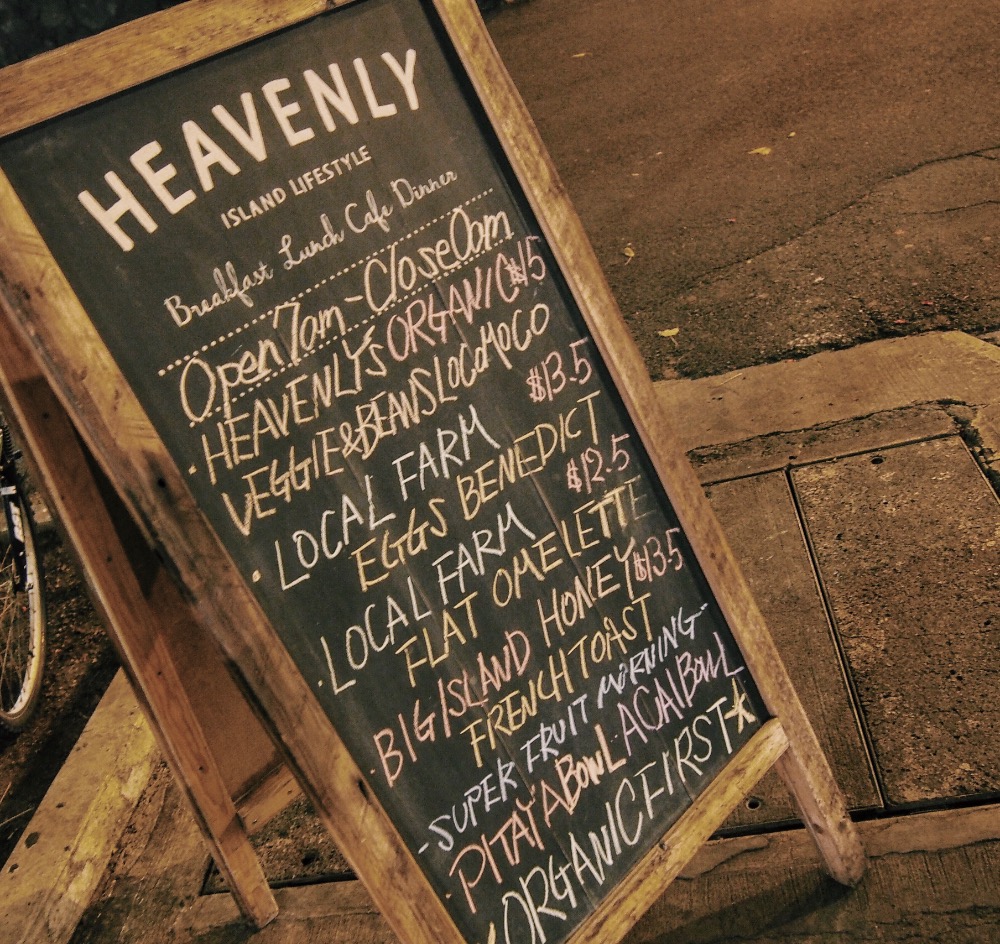 HEAVENLY
ISLAND LIFESTYLE
Breakfast Lunch Cafe Dinner
Open 7am - Close 0am
· HEAVENLY'S ORGANIC $15
VEGGIE & BEANS LOCOMOCO
· LOCAL FARM $13.5
EGGS BENEDICT
· LOCAL FARM $12.5
FLAT OMELETTE
· BIG ISLAND HONEY $13.5
FRENCH TOAST
- SUPER FRUIT MORNING -
· PITAYA BOWL · ACAI BOWL
ORGANIC FIRST